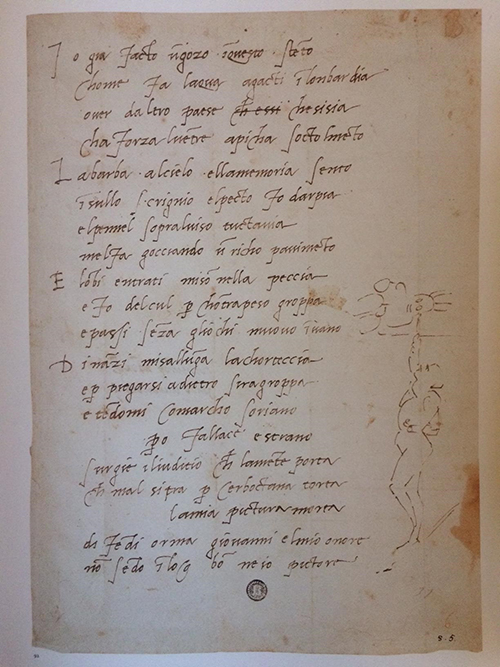 I o gia facto ngozo inquesto stento
chome fa lacqua agacti inlombardia
over daltro paese che essi chesisia
cha forza lventre apicha socto lmento
L a barba alcielo ellamemoria sento
insullo scrignio elpecto fo darpia
elpennel sopraluiso tuctavia
melfa gocciando un richo pauimento
E lobi entrati miso nella peccia
e fo delcul p chotrapeso groppa
e passi seza gliochi muouo inuano
D inazi misalluga lachorteccia
e p piegarsi adietro siragroppa
e tedomi comarcho soriano
po fallace e strano
surgie iliudicio che lamete porta
che mal sitra p cerboctana torta
lamia pictura morta
difedi orma giovanni elmio onore
no sedo iloq bo ne io pictore
8.5.